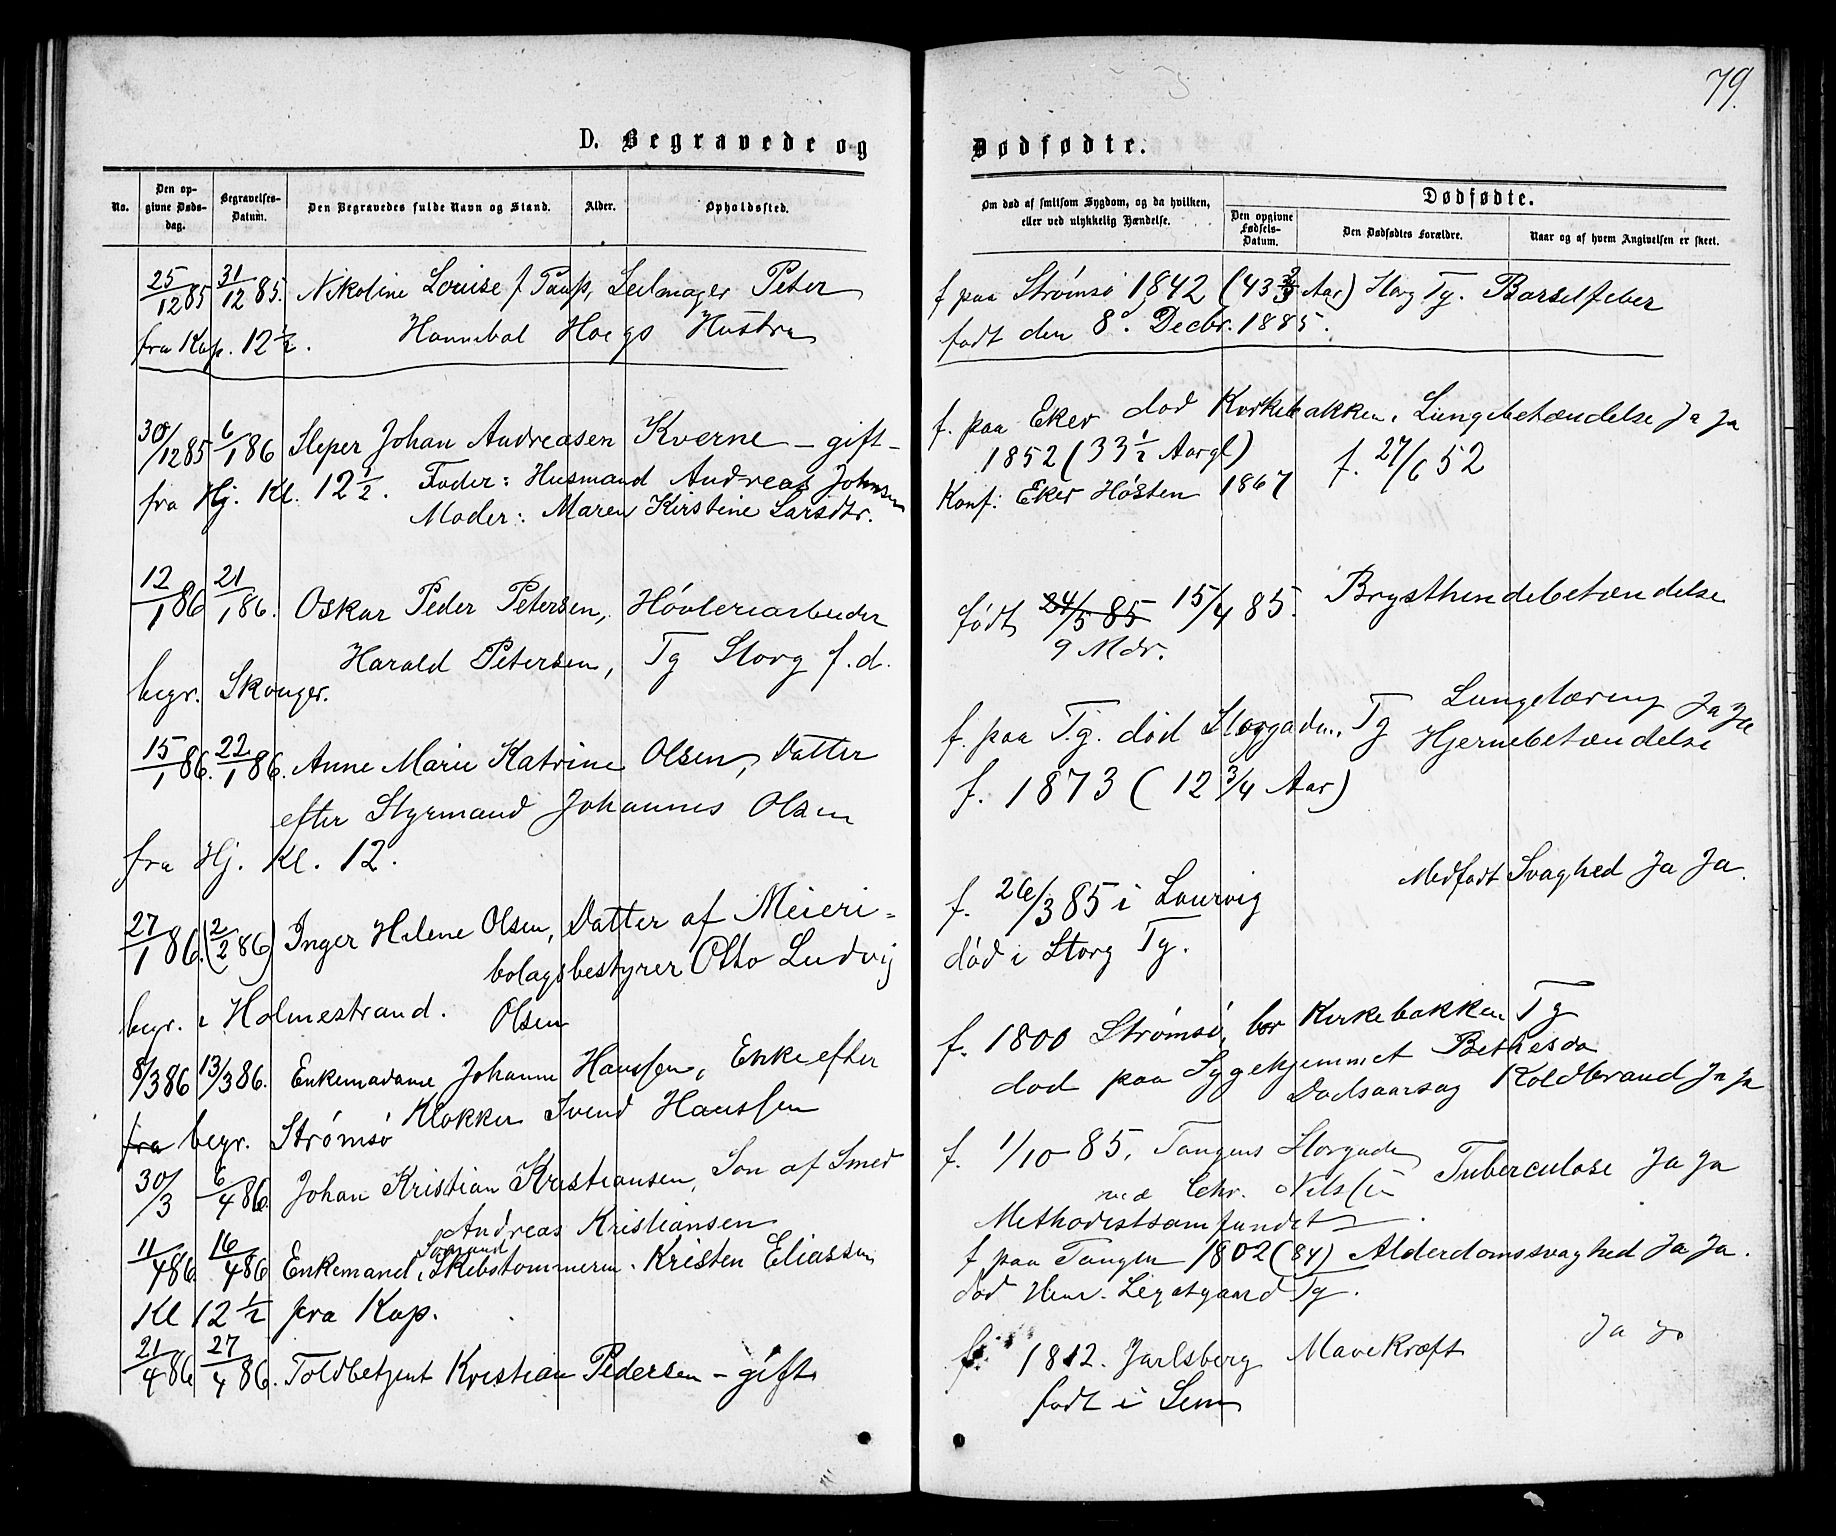 79.
D. Begravede og
Dødfødte.
No.
Den opgivne Døds-dag.
Begravelses-Datum.
Den Begravedes fulde Navn og Stand.
Alder.
Opholdssted.
Om død af smitsom Sygdom, og da hvilken, eller ved ulykkelig Hændelse.
Dødfødte.
Den opgivne Fødsels-Datum.
Den Dødfødtes Forældre.
Naar og af hvem Angivelsen er skeet.
25/12 85 31/12 85. Nikoline Louise f Seilmager Peter
fra Kap. 12 1/2. Hannibal Hoegs Hustru
f paa Strømsø 1842 (43 Aar) Storg Tg. Barselfeber
født den 8de Decbr. 1885.
30/12 85 6/1 86 Sleper Johan Andreasen Kverne - gift -
fra Hj. Kl. 12 1/2. Fader: Husmand Andreas Johnsen
Moder: Maren Kirstine Larsdtr.
f. paa Eker død Kirkebakken. Lungebetændelse Ja Ja
1852 (33 1/2 Aargl) f. 27/6 52
Konf: Eker Høsten 1867
12/1 86 21/1 86. Oskar Peder Petersen, Høvleriarbeider
Harald Petersen, Tg Storg f. d.
begr. Skouger.
født 24/5 85 15/4 85. Brysthindebetændelse
9 Mdr.
15/1 86. 22/1 86. Anne Marie Katrine Olsen, Datter
efter Styrmand Johannes Olsen
fra Hj. Kl. 12.
f. paa Tg. død Storgaden. Tg Lungetæring Ja Ja
Hjernebetændelse
f. 1873 (12 3/4 Aar)
27/1 86. (2/2 86) Inger Helene Olsen, Datter af Meieri=
bolagsbestyrer Otto Ludvig
begr. i Holmestrand. Olsen
f. 26/3 85 i Laurvig Medfødt Svaghed Ja Ja.
død i Storg Tg.
8/3 86 13/3 86. Enkemadame Johanne Hanssen, Enke efter
Klokker Svend Hanssen
fra begr. Strømsø
f. 1800 Strømsø, bor Kirkebakken Tg
død paa Sygehjemmet Bethesda
Dødsaarsag Koldbrand Ja Ja
30/3 6/4 86. Johan Kristian Kristiansen, Søn af Smed
Andreas Kristiansen
f. 1/10 85. Tangens Storgade Tuberculose Ja Ja
ved Chr. Nilssen
Methodistsamfundet.
11/4 86 16/4 86 Enkemand, Skibstømmerm. Kristen Eliassen
Kl 12 1/2 fra Kap.
f paa Tangen 1802 (84) Alderdomssvaghed Ja Ja.
død Tg.
21/4 86 27/4 86. Toldbetjent Kristian Pedersen - gift
f. 1812. Jarlsberg Mavekræft Ja Ja
født i Sem